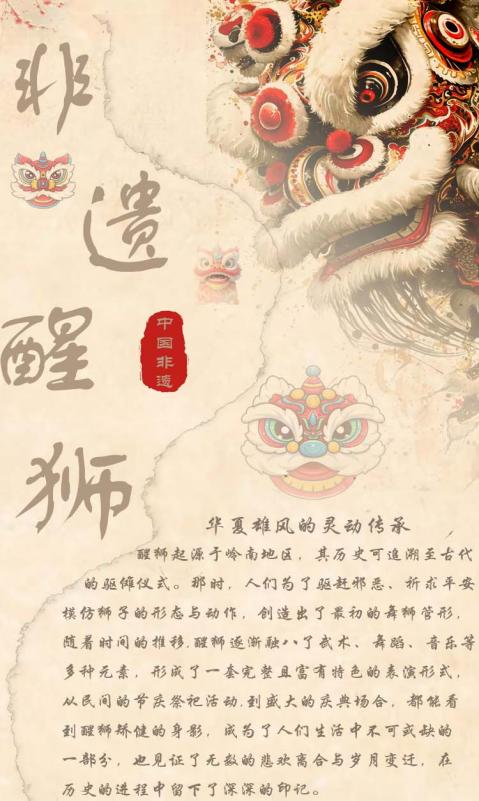 非遗醒狮
中国非遗
华夏雄风的灵动传承
醒狮起源于岭南地区，其历史可追溯至古代
的驱傩仪式。那时，人们为了驱赶邪恶、祈求平安
模仿狮子的形态与动作，创造出了最初的舞狮管形，
随着时间的推移,醒狮逐渐融八了武术、舞蹈、音乐等
多种元素，形成了一套完整且富有特色的表演形式，
从民间的节庆祭祀活动,到盛大的庆典场合，都能看
到醒狮矫健的身影，成为了人们生活中不可或缺的
一部分，也见证了无数的悲欢离合与岁月变迁，在
历史的进程中留下了深深的印记。